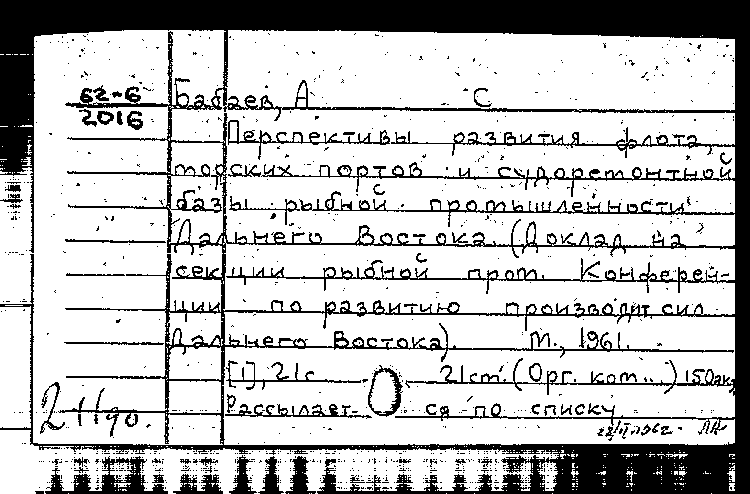 62-6
2016
Бабаев, А С
Перспективы развития флота,
морских портов и судоремонтной
базы рыбной промышленности
Дальнего Востока. (Доклад на
секции рыбной пром. Конферен-
ции по развитию производит. сил
Дальнего Востока). М., 1961.
[1], 21с 21см. (Орг. ком...) 150экз
Рассылает- ся по списку